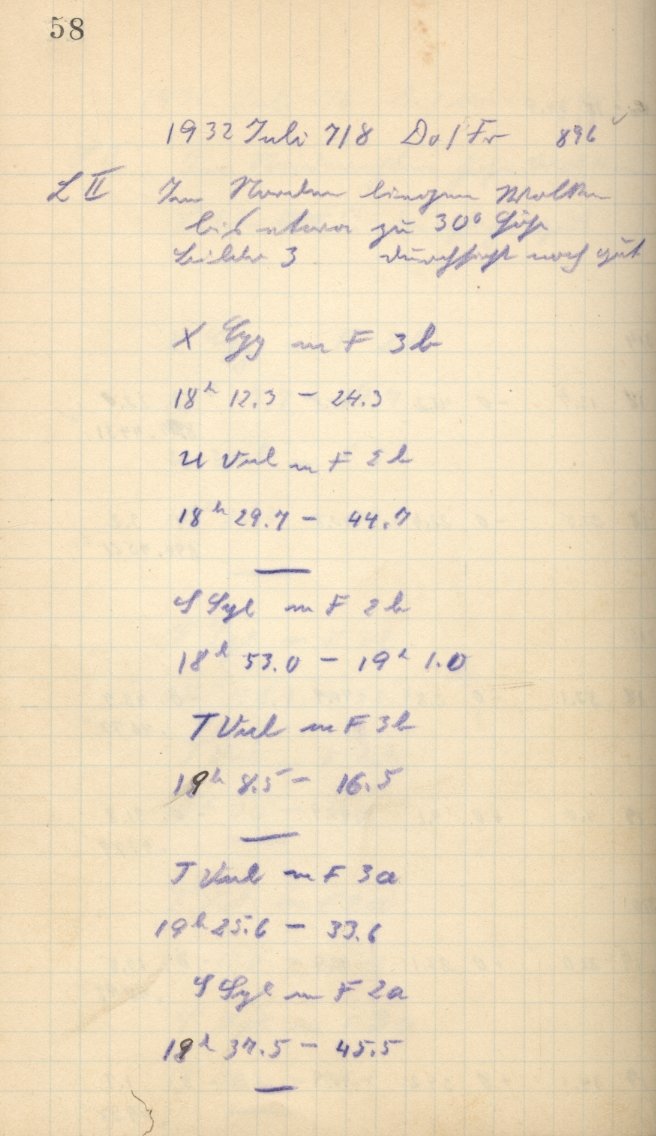 58
1932 Juli 7/8 Do/Fr 896
L II Im Norden liegen Wolken
bis etwa zu 30° Höhe
Bilder 3 Durchsicht noch gut
X Cyg m F 3b
18h 12.3 – 24.3
U Vul m F 2b
18h 29.7 – 44.7
—
S Sge m F 2b
18h 53.0 – 19h 1.0
T Vul m F 3b
19h 8.5 – 16.5
—
T Vul m F 3a
19h 25.6 – 33.6
S Sge m F 2a
19h 37.5 – 45.5
—